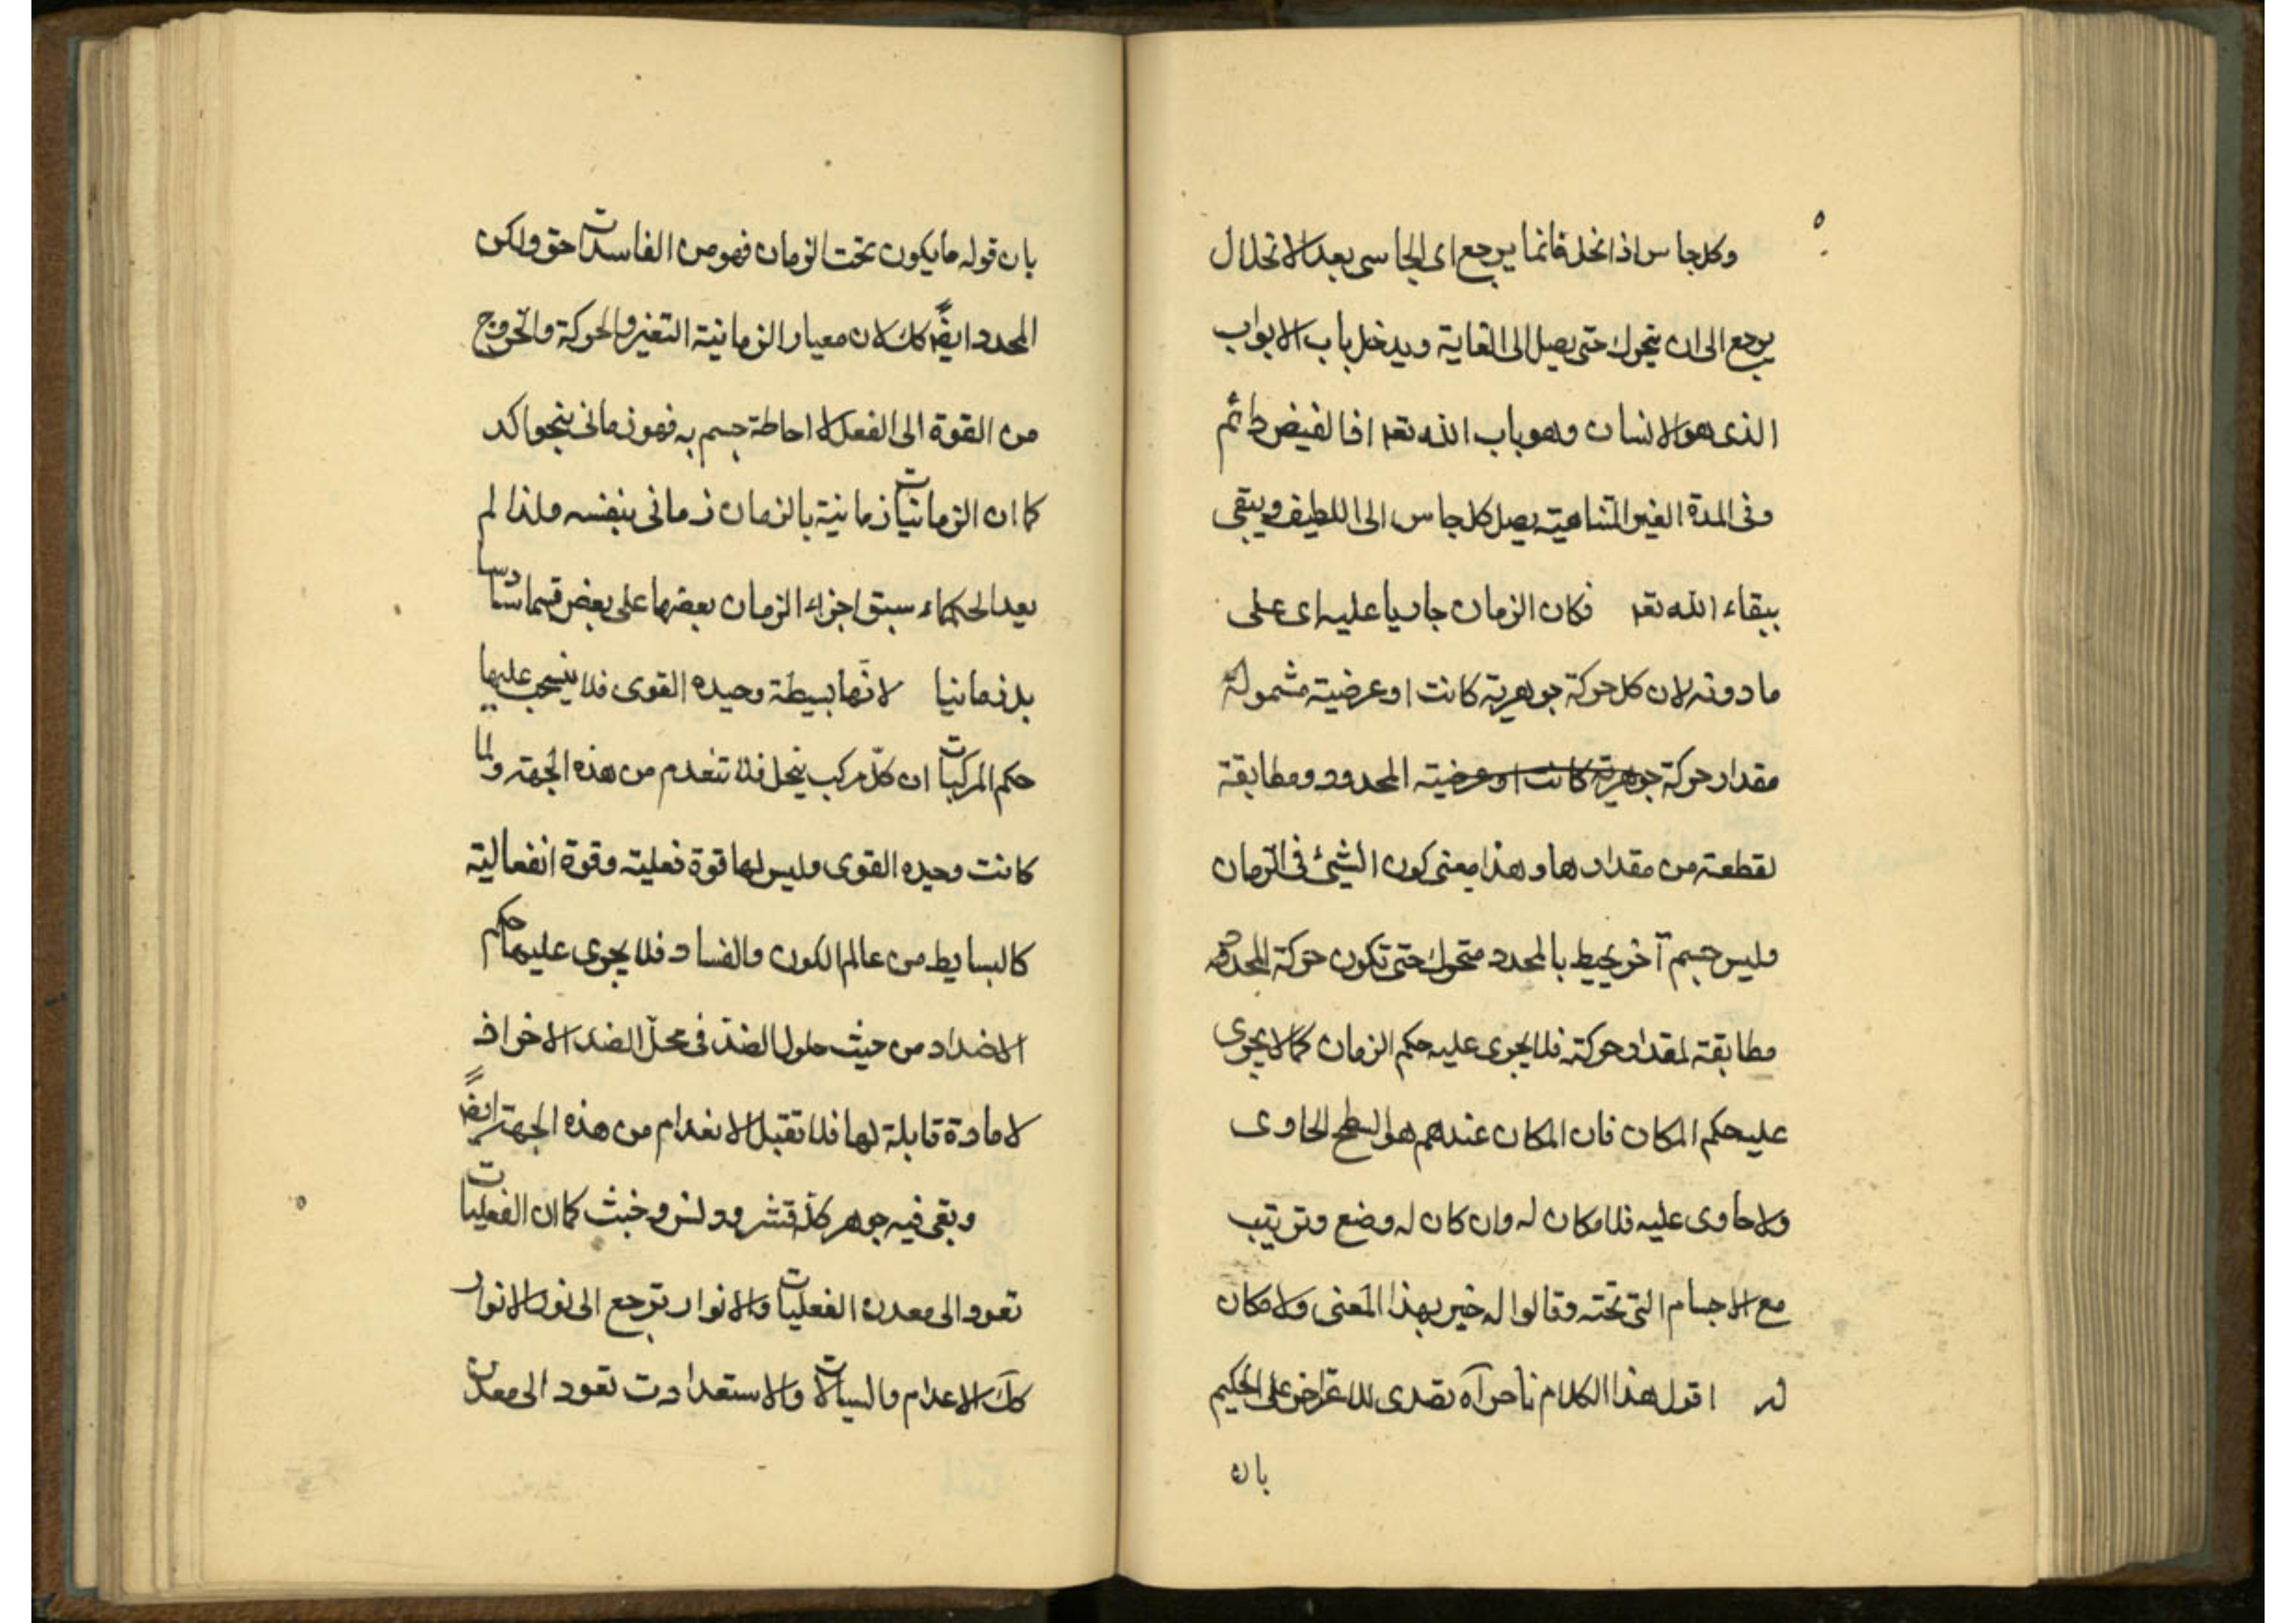 وكل جاس اذا نحل فانما يرجع اى الجاسى بعد الانحلال
يرجع الى ان يتحرك حتى يصل الى الغاية ويدخل باب الابواب
الذى هو الانسان وهو باب الله تعه اذا لفيض دائم
وفى المدة الغير المتناهية يصل كل جاس الى اللطيف ويبقى
ببقاء الله تعه فكان الزمان جاريا عليه اى على
ما دونه لان كل حركة جوهرية كانت او عرضية مشمولة
مقدار حركة جوهرية كانت او عرضية المحدود ومطابقة
لقطعة من مقدارها وهذا معنى كون الشيئ فى الزمان
وليس جسم آخر يحيط بالمحدد متحرك حتى تكون حركة المحدد
مطابقة لمقدار حركته فلا يجرى عليه حكم الزمان كما لا يجرى
عليه حكم المكان فان المكان عندهم هو السطح الحاوى
ولا حاوى عليه فلا مكان له وان كان له وضع وترتيب
مع الاجسام التى تحته وقالوا له خير بهذا المعنى ولا مكان
له اقول هذا الكلام نا حرآه تصدى للاعتراض على الحكيم
بان
بان قوله ما يكون تحت الزمان فهو من الفاسدات حق ولكن
المحدد ايضاً كك لان معيار الزمانية التغير والحركة والخروج
من القوة الى الفعل لا احاطة جسم به فهو زمانى بنحو اكد
كما ان الزمانيات زمانية بالزمان زمانى بنفسه ولذا لم
يعد الحكماء سبق اجزاء الزمان بعضها على بعض قسما سادسا
بل زمانيا لانها بسيطة وحيده القوى فلا ينسحب عليها
حكم المركبات ان كل مركب ينحل فلا تنعدم من هذه الجهة ولما
كانت وحيده القوى وليس لها قوة فعلية وقوة انفعالية
كالبسايط من عالم الكون والفساد فلا يجرى عليها حكم
الاضداد من حيث حلول الضد فى محل الضد الاخر اذ
لا مادة قابلة لها فلا تقبل الانعدام من هذه الجهة ايضاً
وبقى فيه جوهر كل قشر ودنس وخبث كما ان الفعليات
تعود الى معدن الفعليات والانوار ترجع الى نور الانوار
كك الاعدام والسيالات والاستعدادت تعود الى معدن